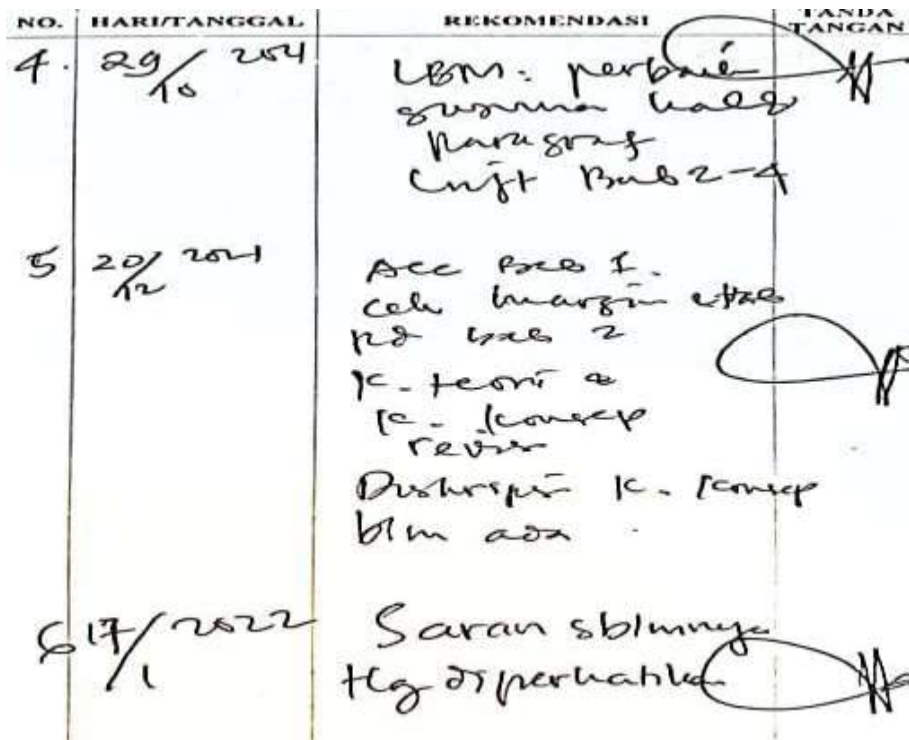 NO. HARI/TANGGAL REKOMENDASI TANDA TANGAN
4. 29/10 2021 LBM: perbaiki
susunan kal&
Paragraf
Lnjt Bab 2-4
5 20/12 2021 Acc Bab 1.
cek margin
pd bab 2
K. teori &
K. konsep
revisi
Diskripsi K. Konsep
blm ada
6 17/1 2022 Saran sblmnya
tlg diperhatikan